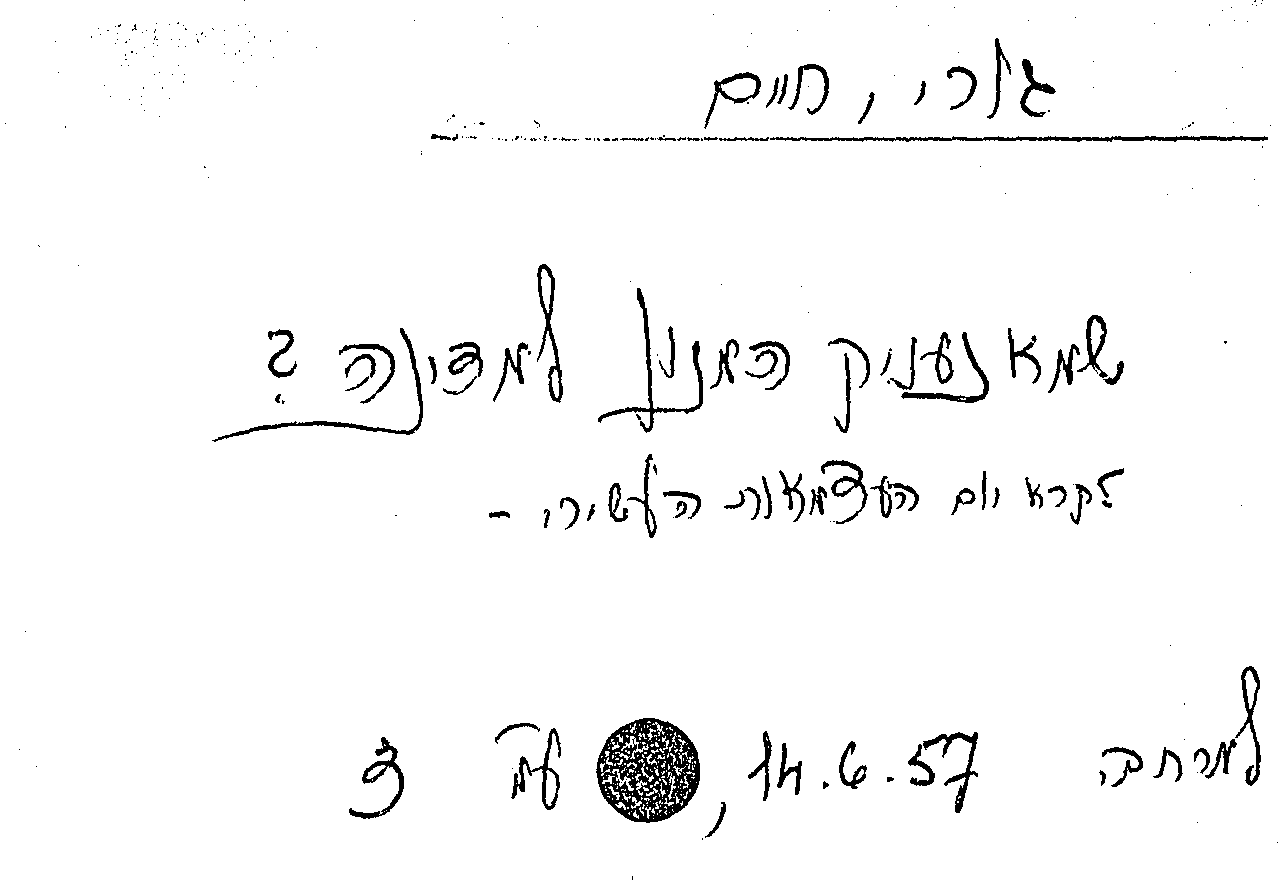 גורי, חיים
שמא נעניק המנון למדינה?
לקרא יום העצמאות העשירי -
למרחב 14.6.57, עמ' 3